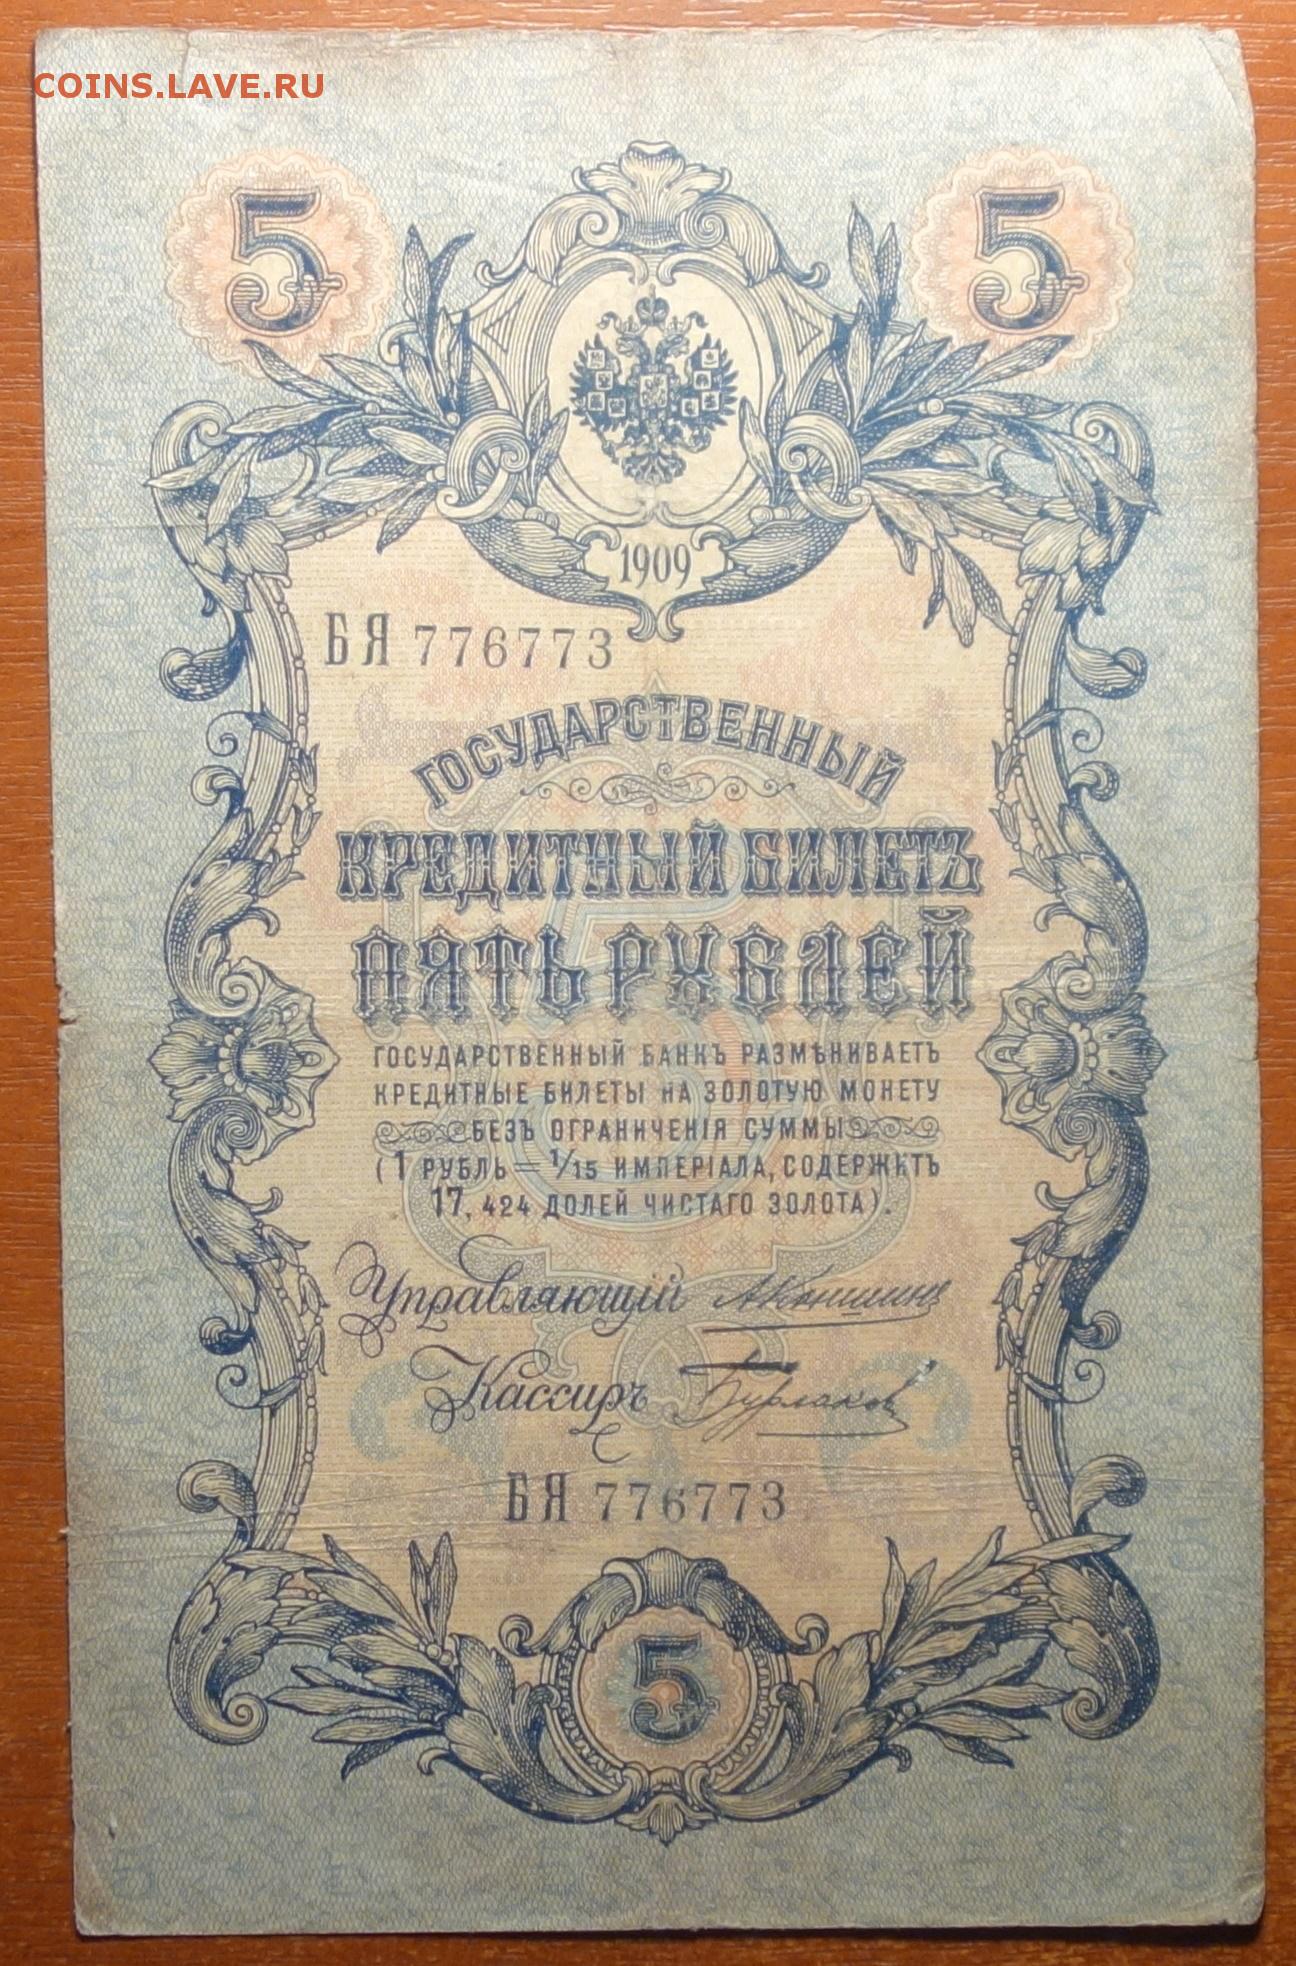 COINS.LAVE.RU
5 5
1909
БЯ 776773
ГОСУДАРСТВЕННЫЙ
КРЕДИТНЫЙ БИЛЕТЪ
ПЯТЬ РУБЛЕЙ
ГОСУДАРСТВЕННЫЙ БАНКЪ РАЗМѢНИВАЕТЪ
КРЕДИТНЫЕ БИЛЕТЫ НА ЗОЛОТУЮ МОНЕТУ
БЕЗЪ ОГРАНИЧЕНІЯ СУММЫ
(1 РУБЛЬ = 1/15 ИМПЕРІАЛА, СОДЕРЖИТЪ
17, 424 ДОЛЕЙ ЧИСТАГО ЗОЛОТА).
Управляющій АКоншинъ
Кассиръ Бурлаковъ
БЯ 776773
5